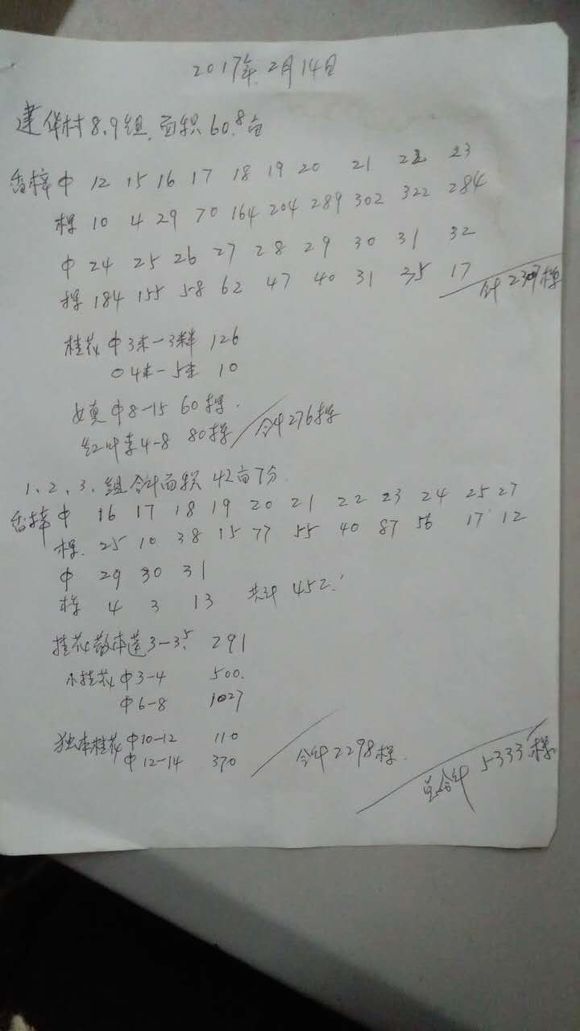 2017年2月14日
建华村8.9组.面积60.8亩
香樟 中 12 15 16 17 18 19 20 21 22 23
棵 10 4 29 70 164 204 289 302 322 284
中 24 25 26 27 28 29 30 31 32
棵 184 155 58 62 47 40 31 35 17 合计2307棵
桂花 中3米-3米半 126
04米-5米 10
女贞 中8-15 60棵.
红叶李4-8 80棵 合计276棵
1、2、3、组合计面积 42亩7分
香樟 中 16 17 18 19 20 21 22 23 24 25 27
棵. 25 10 38 15 77 55 40 87 56 17 12
中 29 30 31
棵 4 3 13 共计 452.
桂花散本莲3-3.5 291
小桂花 中3-4 500.
中6-8 1027
独本桂花 中10-12 110
中12-14 370 合计2298棵.
总合计 5333棵